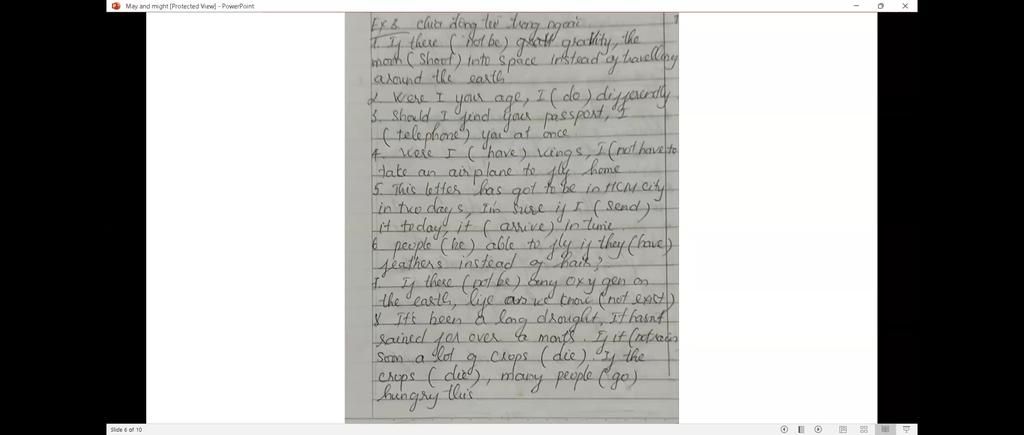 May and might [Protected View] - PowerPoint
Ex 8. chia động từ trong ngoặc
1. If there ( not be) gravity, the
moon ( shoot) into space instead of travelling
around the earth
2. Were I your age, I ( do ) differently
3. Should I find your passport, I
( telephone) you at once
4. Were I ( have) wings, I (not have to
take an airplane to fly home
5. This letter has got to be in HCM city
in two days, I'm sure if I ( send)
it today, it ( arrive) in time
6 people ( be) able to fly if they (have)
feathers instead of hair?
7. If there ( not be) any oxygen on
the earth, life as we know (not exist)
8 It's been a long drought, It hasn't
rained for over a month. If it (not rain
soon a lot of crops ( die). If the
crops ( die), many people ( go)
hungry this
Slide 6 of 10